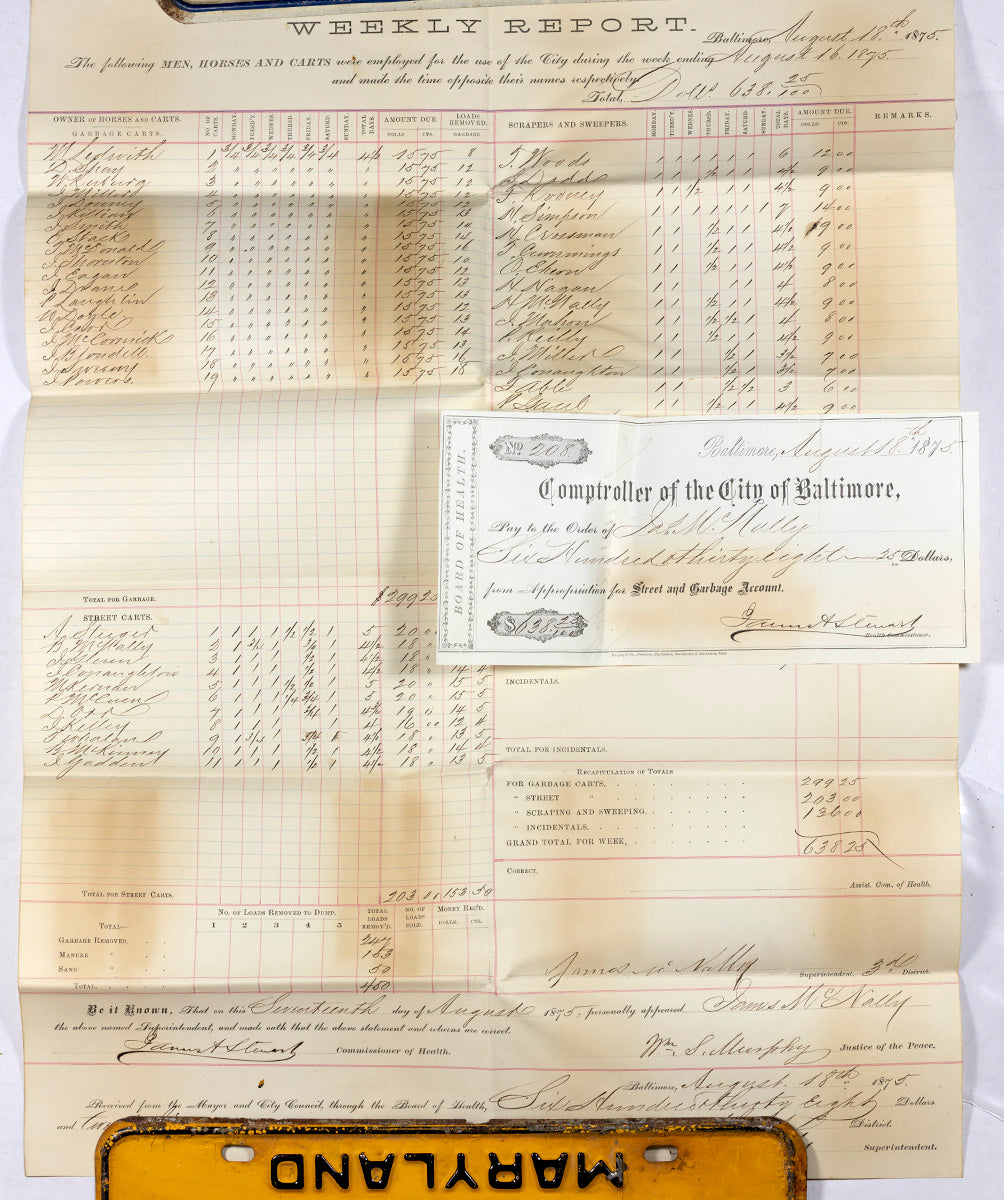 WEEKLY REPORT.
Baltimore, August 18th 1875.
The following MEN, HORSES AND CARTS were employed for the use of the City during the week ending August 16. 1875
and made the time opposite their names respectively.
Total, Dolls 638. 25/100
OWNER OF HORSES AND CARTS.
GARBAGE CARTS.
NO. OF CARTS. MONDAY. TUESD'Y. WEDNES. THURSD. FRIDAY. SATURD. SUNDAY. TOTAL DAYS. AMOUNT DUE. DOLLS. CTS. LOADS REMOVED, GARBAGE.
1 3/4 3/4 3/4 3/4 3/4 3/4 4 1/2 15 75 8
D. Spay 2 " " " " " " " 15 75 12
3 " " " " " " " 15 75 12
4 " " " " " " " 15 75 12
J. Downey 5 " " " " " " " 15 75 12
J. Killian 6 " " " " " " " 15 75 13
J. Smith 7 " " " " " " " 15 75 14
C. Stack 8 " " " " " " " 15 75 14
J. McDonald 9 " " " " " " " 15 75 16
J. Thornton 10 " " " " " " " 15 75 10
J. Eagan 11 " " " " " " " 15 75 12
J. Deane 12 " " " " " " " 15 75 13
P. Laughlin 13 " " " " " " " 15 75 13
W. Doyle 14 " " " " " " " 15 75 12
J. Carr 15 " " " " " " " 15 75 13
J. McCormick 16 " " " " " " " 15 75 14
J. Blondell 17 " " " " " " " 15 75 13
18 " " " " " " " 15 75 16
J. Powers 19 " " " " " " " 15 75 18
TOTAL FOR GARBAGE. $299 25
STREET CARTS.
A. Steiger 1 1 1 1 1/2 1/2 1 5 20 00
B. McNally 2 18 "
J. Glenn 3 18 "
J. Conaughton 4 18 " 14 4
5 1 1 1 1/2 1/2 1 5 20 " 15 5
P. McCuen 6 1 1 1 1/4 3/4 1 5 20 " 15 5
7 1 1 1 3/4 1 19 0 14 5
J. Kelley 8 1 1 1 1 4 16 00 12 4
9 18 " 13 5
B. McKinney 10 1 1 1 1/2 1 4 1/2 18 " 14 4
J. Gaddent 11 1 1 1 1/2 1 4 1/2 18 0 13 5
TOTAL FOR STREET CARTS, 203 00 153 50
NO. OF LOADS REMOVED TO DUMP. 1 2 3 4 5 TOTAL LOADS REMOV'D. NO. OF LOADS SOLD. MONEY REC'D. DOLLS. CTS.
TOTAL—
GARBAGE REMOVED, 247
MANURE " 153
SAND " 50
TOTAL, 450
SCRAPERS AND SWEEPERS. MONDAY. TUESD'Y. WEDNES. THURSD. FRIDAY. SATURD. SUNDAY. TOTAL DAYS. AMOUNT DUE. DOLLS. CTS. REMARKS.
T. Woods 1 1 1 1 1 1 6 12 00
Dodd 1 1 1/2 1 1 4 1/2 9 00
T. Rooney 1 1 1/2 1 1 4 1/2 9 00
H. Simpson 1 1 1 1 1 1 1 7 14 00
H. Crossman 1 1 1/2 1 1 4 1/2 9 00
T. Cummings 1 1 1/2 1 1 4 1/2 9 00
1 1 1/2 1 1 4 1/2 9 00
H. Hagan 1 1 1 1 4 8 00
H. McNally 1 1 1/2 1 1 4 1/2 9 00
J. Mahon 1 1 1/2 1/2 1 4 8 00
P. Reilly 1 1 1/2 1 1 4 1/2 9 00
J. Miller 1 1 1/2 1 3 1/2 7 00
J. Conaughton 1 1 1/2 1 3 1/2 7 00
J. Able 1 1 1/2 1/2 3 6 00
1 1 1/2 1 1 4 1/2 9 00
BOARD OF HEALTH.
No 208
Baltimore, August 18th 1875
Comptroller of the City of Baltimore,
Pay to the Order of Jas. McNally
Six Hundred & thirty eight 25 Dollars,
from Appropriation for Street and Garbage Account.
$638.25/100
James A Stewart
Health Commissioner.
INCIDENTALS.
TOTAL FOR INCIDENTALS.
RECAPITULATION OF TOTALS.
FOR GARBAGE CARTS, 299 25
" STREET " 203 00
" SCRAPING AND SWEEPING, 136 00
" INCIDENTALS,
GRAND TOTAL FOR WEEK, 638 25
CORRECT,
Assist. Com. of Health.
James McNally Superintendent, 3d District.
Be it Known, That on this Seventeenth day of August 1875, personally appeared James McNally
the above named Superintendent, and made oath that the above statement and returns are correct.
James A Stewart Commissioner of Health.
Wm S. Murphy Justice of the Peace.
Baltimore, August 18th 1875.
Received from the Mayor and City Council, through the Board of Health, Six Hundred & thirty Eight Dollars
and District.
Superintendent.
MARYLAND